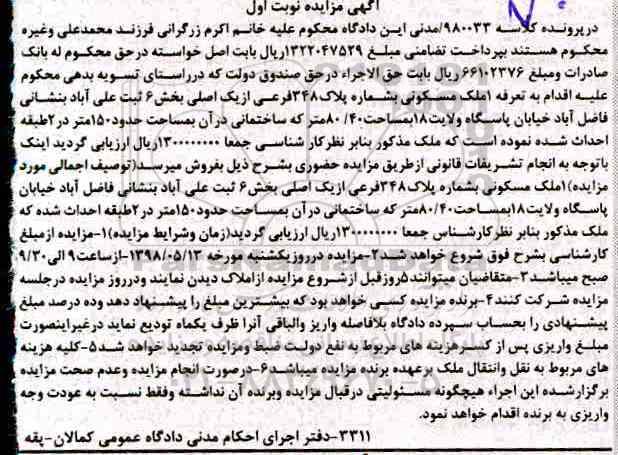 آگهی مزایده نوبت اول
درپرونده کلاسه ۹۸۰۰۳۳/مدنی این دادگاه محکوم علیه خانم اکرم زرگرانی فرزند محمدعلی وغیره
محکوم هستند بپرداخت تضامنی مبلغ ۱۳۲۲۰۴۷۵۲۹ریال بابت اصل خواسته درحق محکوم له بانک
صادرات ومبلغ ۶۶۱۰۲۳۷۶ ریال بابت حق الاجراء درحق صندوق دولت که درراستای تسویه بدهی محکوم
علیه اقدام به تعرفه ۱ملک مسکونی بشماره پلاک۳۴۸فرعی ازیک اصلی بخش۶ ثبت علی آباد بنشانی
فاضل آباد خیابان پاسگاه ولایت۱۸بمساحت۸۰/۴۰متر که ساختمانی درآن بمساحت حدود۱۵۰متر در۲طبقه
احداث شده نموده است که ملک مذکور بنابر نظرکار شناسی جمعا ۱۳۰۰۰۰۰۰۰۰ریال ارزیابی گردید اینک
باتوجه به انجام تشریفات قانونی ازطریق مزایده حضوری بشرح ذیل بفروش میرسد(توصیف اجمالی مورد
مزایده)۱ملک مسکونی بشماره پلاک۳۴۸فرعی ازیک اصلی بخش۶ ثبت علی آباد بنشانی فاضل آباد خیابان
پاسگاه ولایت۱۸بمساحت۸۰/۴۰متر که ساختمانی درآن بمساحت حدود۱۵۰متر در۲طبقه احداث شده که
ملک مذکور بنابر نظرکارشناس جمعا ۱۳۰۰۰۰۰۰۰۰ریال ارزیابی گردید(زمان وشرایط مزایده)۱-مزایده ازمبلغ
کارشناسی بشرح فوق شروع خواهد شد۲-مزایده درروزیکشنبه مورخه ۱۳۹۸/۰۵/۱۳-ازساعت۹ الی۹/۳۰
صبح میباشد۳-متقاضیان میتوانند۵روزقبل ازشروع مزایده ازاملاک دیدن نمایند ودرروز مزایده درجلسه
مزایده شرکت کنند۴-برنده مزایده کسی خواهد بود که بیشترین مبلغ را پیشنهاد دهد وده درصد مبلغ
پیشنهادی را بحساب سپرده دادگاه بلافاصله واریز والباقی آنرا ظرف یکماه تودیع نماید درغیراینصورت
مبلغ واریزی پس از کسرهزینه های مربوط به نفع دولت ضبط ومزایده تجدید خواهد شد۵-کلیه هزینه
های مربوط به نقل وانتقال ملک برعهده برنده مزایده میباشد۶-درصورت انجام مزایده وعدم صحت مزایده
برگزارشده این اجراء هیچگونه مسئولیتی درقبال مزایده وبرنده آن نداشته وفقط نسبت به عودت وجه
واریزی به برنده اقدام خواهد نمود.
۳۳۱۱-دفتر اجرای احکام مدنی دادگاه عمومی کمالان-پقه